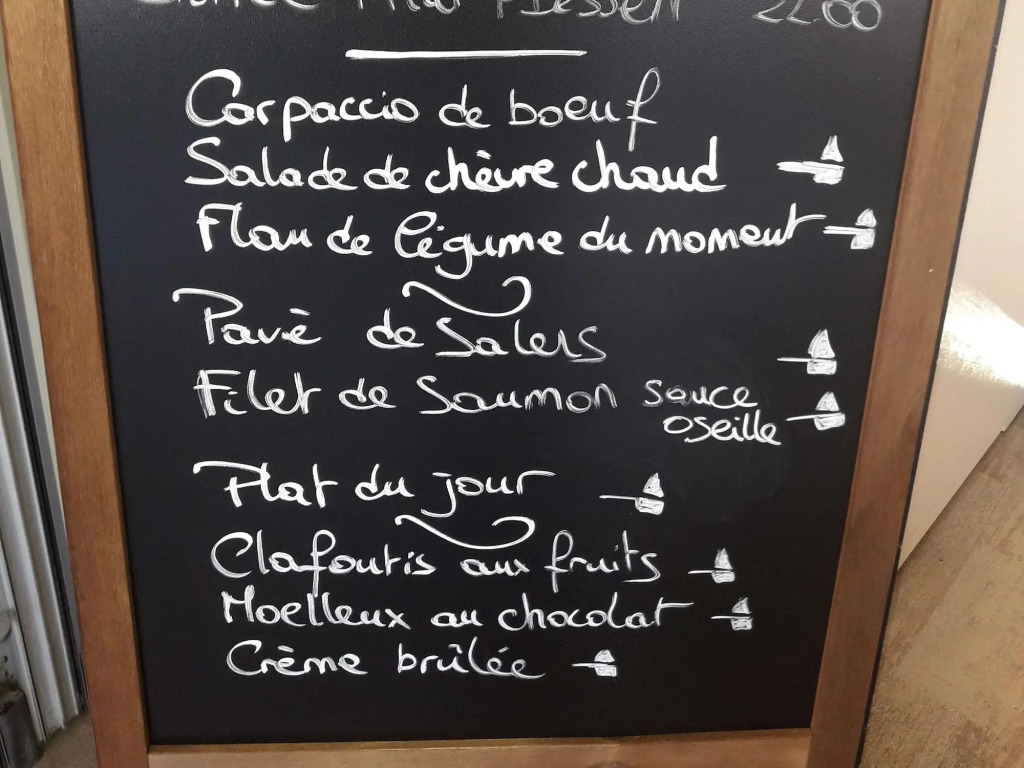 22.00
Carpaccio de boeuf
Salade de chèvre chaud
Flan de légume du moment
Pavè de Salers
Filet de Saumon sauce
oseille
Plat du jour
Clafoutis aux fruits
Moelleux au chocolat
Crème brûlée